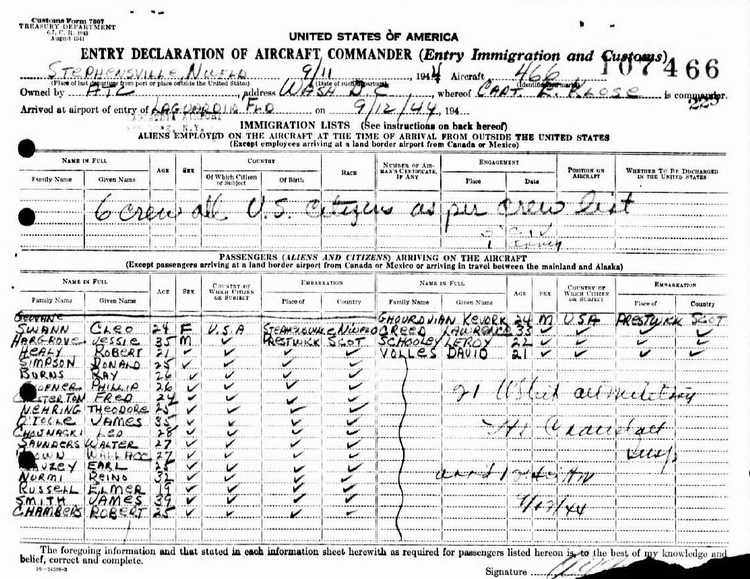 Customs Form 7507
TREASURY DEPARTMENT
August 1941
UNITED STATES OF AMERICA
ENTRY DECLARATION OF AIRCRAFT COMMANDER (Entry Immigration and Customs)
107466
STEPHENSVILLE, NWFLD 9/11 1944 Aircraft 466
Owned by ATC address WASH D.C. whereof CAPT. E. KLOSE is commander.
Arrived at airport of entry of LAGUARDIA FLD on 9/12/44, 194
IMMIGRATION LISTS (See instructions on back hereof)
ALIENS EMPLOYED ON THE AIRCRAFT AT THE TIME OF ARRIVAL FROM OUTSIDE THE UNITED STATES
(Except employees arriving at a land border airport from Canada or Mexico)
NAME IN FULL AGE SEX COUNTRY RACE NUMBER OF AIRMAN'S CERTIFICATE, IF ANY ENGAGEMENT POSITION ON AIRCRAFT WHETHER TO BE DISCHARGED IN THE UNITED STATES
Family Name Given Name Of Which Citizen or Subject Of Birth Place Date
6 crew all U.S. citizens as per crew list
PASSENGERS (ALIENS AND CITIZENS) ARRIVING ON THE AIRCRAFT
(Except passengers arriving at a land border airport from Canada or Mexico or arriving in travel between the mainland and Alaska)
NAME IN FULL AGE SEX COUNTRY OF WHICH CITIZEN OR SUBJECT EMBARKATION NAME IN FULL AGE SEX COUNTRY OF WHICH CITIZEN OR SUBJECT EMBARKATION
Family Name Given Name Place of Country Family Name Given Name Place of Country
GHOUROVIAN KEVORK 24 M USA PRESTWIRK SCOT
SWANN CLEO 24 F U.S.A STEPHENVILLE NWFLD CREED LAWRENCE 33
HARGROVE JESSIE 35 M PRESTWIRK SCOT SCHOOLEY LEROY 22
HEALY ROBERT 21 VOLLES DAVID 21
SIMPSON DONALD 25
BURNS RAY 26
PHILLIP 26
FRED 24
NEHRING THEODORE 25
O'TOOLE JAMES 35
LEO 28
SAUNDERS WALTER 27
WALLACE 27
EARL 25
NURMI REINO 32
RUSSELL ELMER 19
SMITH JAMES 39
CHAMBERS ROBERT 25
21 US cit all military
9/12/44
The foregoing information and that stated in each information sheet herewith as required for passengers listed hereon is, to the best of my knowledge and
belief, correct and complete.
Signature